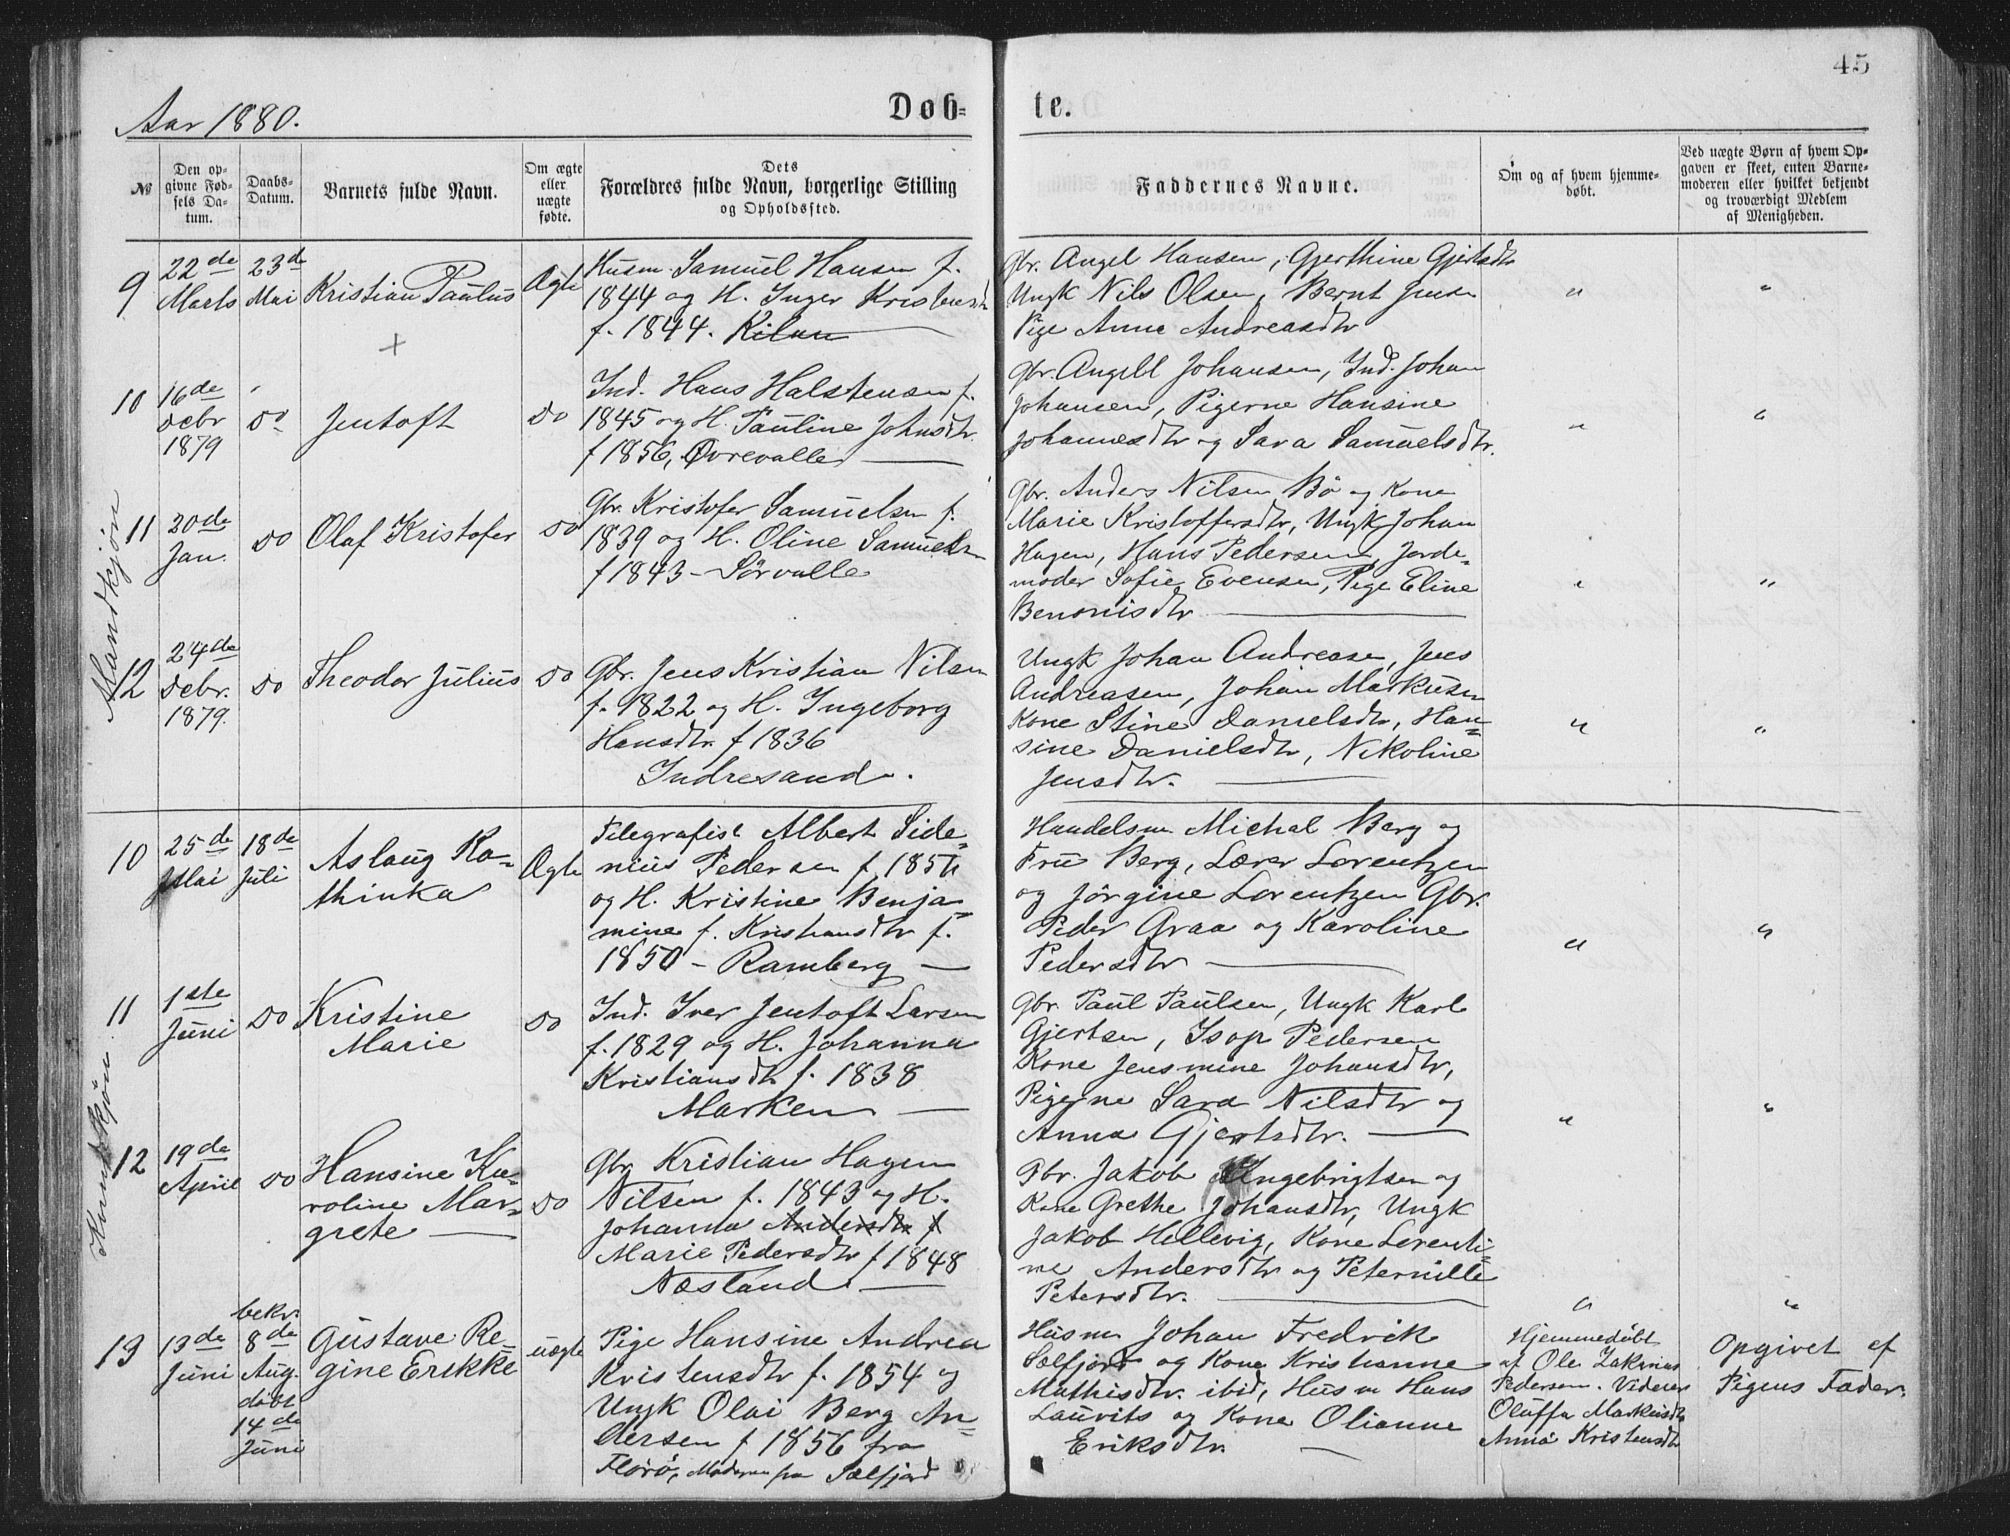 45
Aar 1880.
Døb-
te.
№
Den op-
givne Fød-
sels Da-
tum.
Daabs-
Datum.
Barnets fulde Navn.
Om ægte
eller
uægte
fødte.
Dets
Forældres fulde Navn, borgerlige Stilling
og Opholdssted.
Faddernes Navne.
Om og af hvem hjemme-
døbt.
Ved uægte Børn af hvem Op-
gaven er skeet, enten Barne-
moderen eller hvilket bekjendt
og troværdigt Medlem
af Menigheden.
Mandkjøn
9
22de
Marts
23de
Mai
Kristian Paulus
+
Ægte
Husm. Samuel Hansen f.
1844 og H. Inger Kristensdtr
f. 1844. Kilan
Gbr. Angel Hansen, Gjerthine Gjertsdtr
Ungk Nils Olsen, Bernt Jensen
Pige Anne Andreasdtr
"
"
10
16de
Debr
1879
Do
Jentoft
Do
Ind. Hans Halstensen f.
1845 og H. Pauline Johnsdtr.
f 1856, Øvrevalle
Gbr. Angell Johansen, Ind. Johan
Johansen, Pigerne Hansine
Johannesdtr og Sara Samuelsdtr.
"
"
11
20de
Jan.
Do
Olaf Kristofer
Do
Gbr. Kristofer Samuelsen f.
1839 og H. Oline Samuelsdtr
f 1843 - Sørvalle
Gbr. Anders Nilsen Bø og Kone
Marie Kristoffersdtr, Ungk Johan
Hagen, Hans Pedersen, Jorde-
moder Sofie Evensen, Pige Eline
Benonisdtr
"
"
12
24de
Debr.
1879.
Do
Theodor Julius
Do
Gbr. Jens Kristian Nilsen
f. 1822 og H. Ingeborg
Hansdtr. f 1836
Indresand.
Ungk Johan Andreasen, Jens
Andreasen, Johan Markusen
Kone Stine Danielsdtr, Han-
sine Danielsdtr, Nikoline
Jensdtr.
"
"
Kvindekjøn
10
25de
Mai
18de
Juli
Aslaug Ka-
thinka
Ægte
Telegrafist Albert Side-
nius Pedersen f. 1851
og H. Kristine Benja-
mine f. Kristiansdtr f.
1850 - Ramberg
Handelsm. Michal Berg og
Fru Berg, Lærer Lorentzen
og Jørgine Lorentzen Gbr.
Peder Graa og Karoline
Pedersdtr
"
"
11
1ste
Juni
Do
Kristine
Marie
Do
Ind. Iver Jentoft Larsen
f. 1829 og H. Johanna
Kristiansdtr f. 1838
Marken
Gbr. Paul Paulsen, Ungk Karl
Gjertsen, Isop Pedersen
Kone Jensmine Johansdtr,
Pigerne Sara Nilsdtr og
Anna Gjertsdtr.
"
"
12
19de
April
Do
Hansine Ka-
roline Mar-
grete
Do
Gbr Kristian Hagen
Nilsen f. 1843 og H.
Johanna Andersdtr f
Marie Pedersdtr f 1848
Næsland
Gbr. Jakob Ingebrigtsen og
Kone Grethe Johansdtr, Ungk
Jakob Hellevig, Kone Lorenti-
ne Andersdtr og Peternille
Petersdtr.
"
"
13
13de
Juni
bekr.
8de
Aug.
døbt
14de
Juni
Gustave Re-
gine Erikke
uægte
Pige Hansine Andrea
Kristensdtr f. 1854 og
Ungk Olai Berg An-
dersen f 1856 fra
Florø, Moderen fra Selfjord
Husm Johan Fredrik
Selfjord og Kone Kristianne
Mathisdtr. ibid, Husm Hans
Laurits og Kone Olianne
Eriksdtr.
Hjemmedøbt
af Ole Zakarias
Pedersen. Vidner
Oluffa Markusdtr
Anna Kristensdtr
Opgivet af
Pigens Fader.